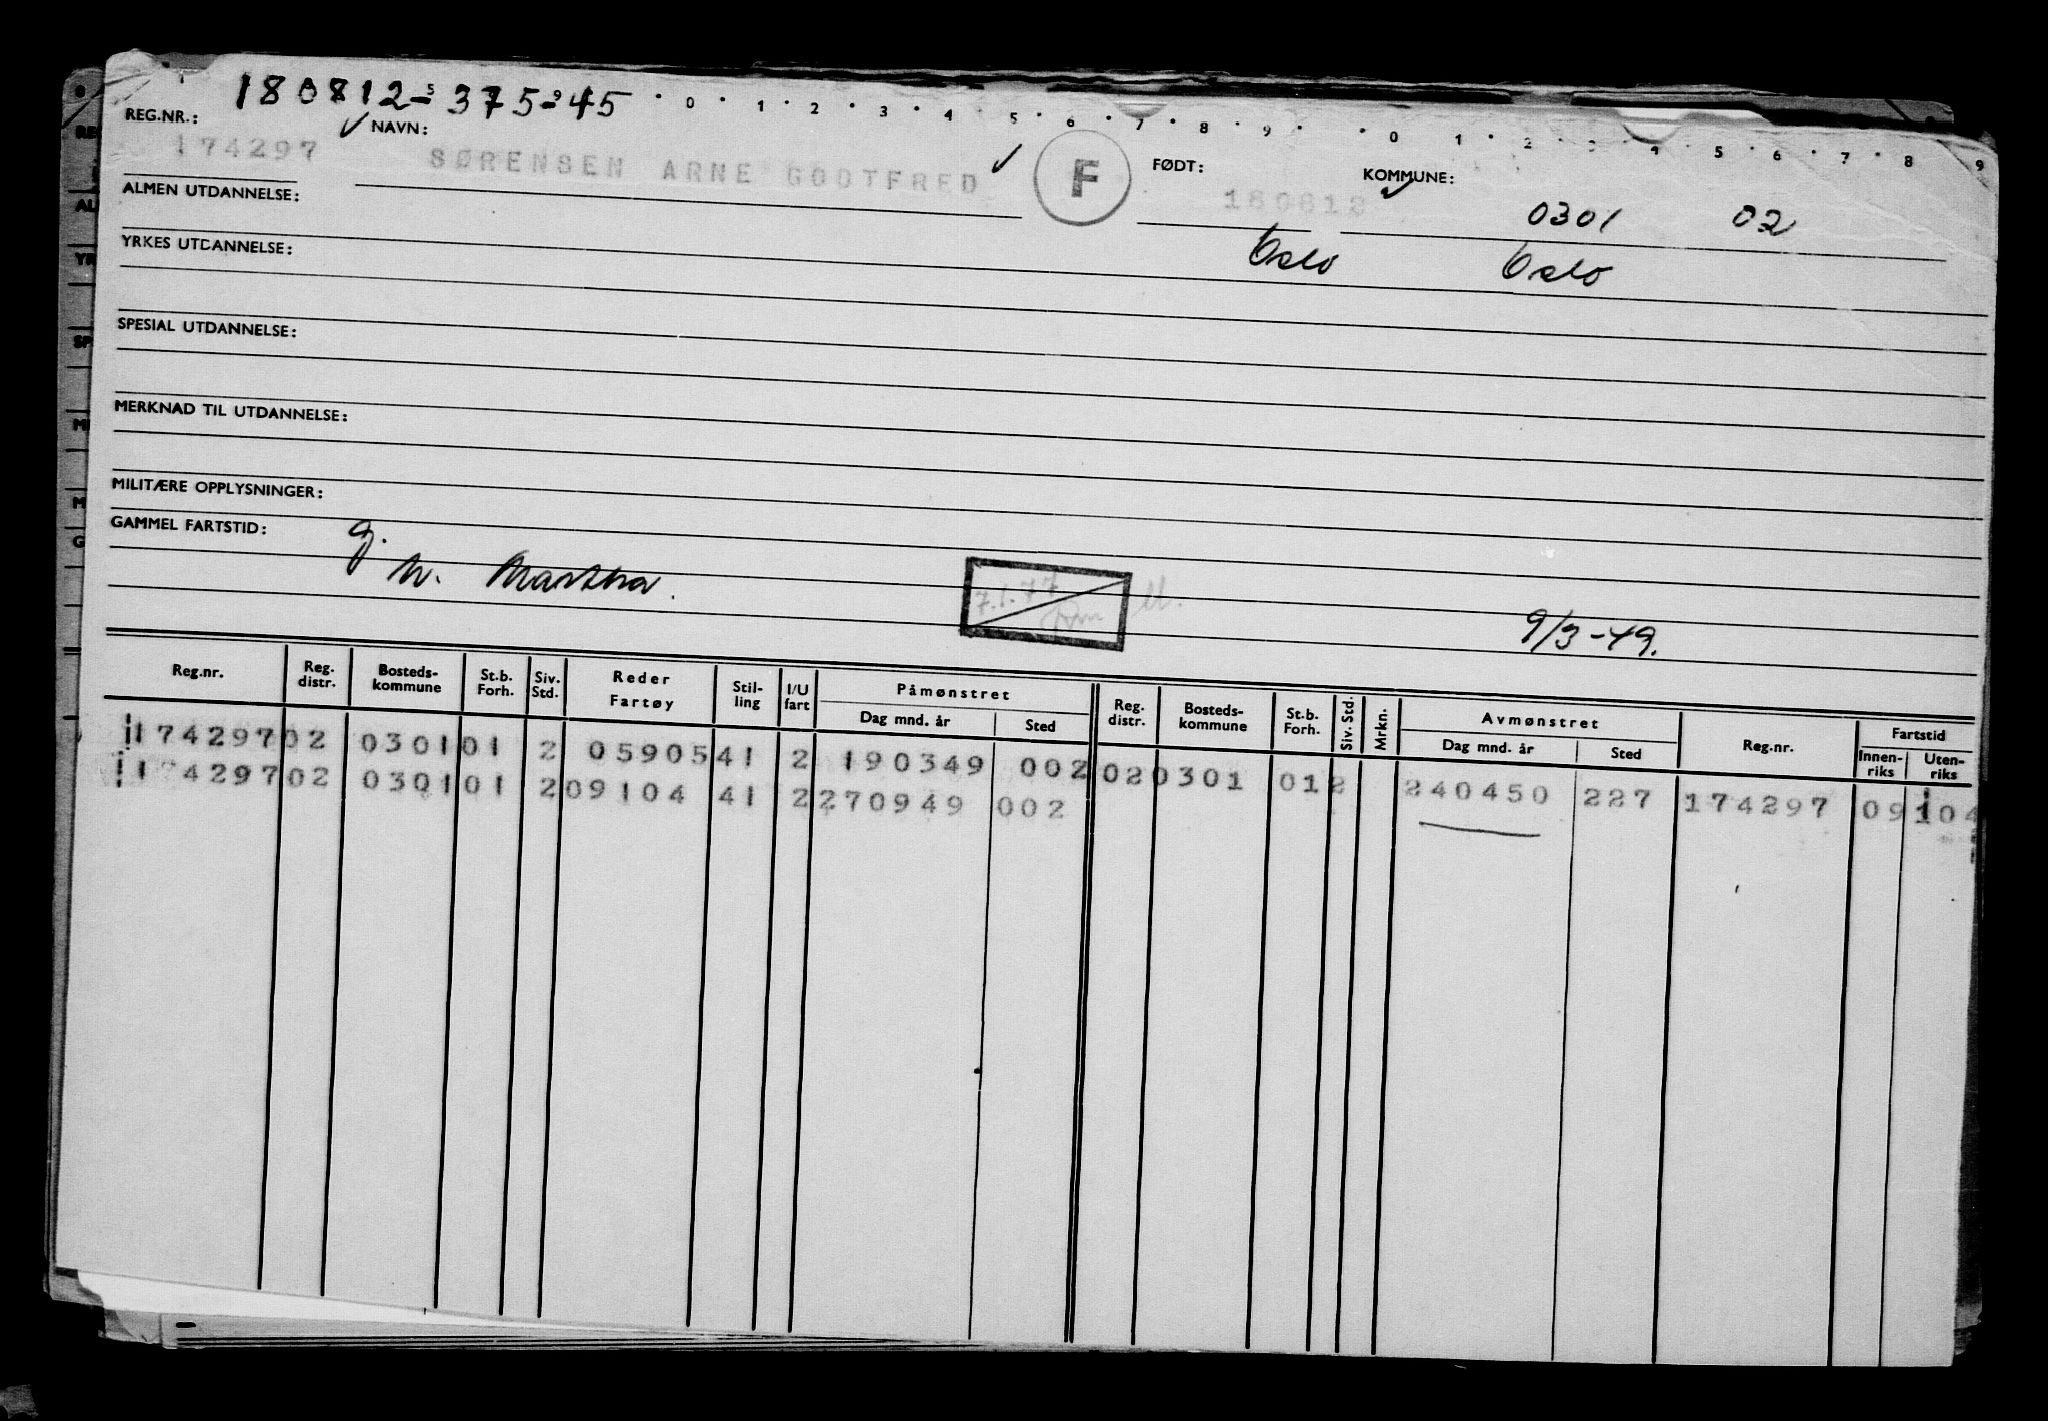 180812-375-45
0 1 2 3 4 5 6 7 8 9 0 1 2 3 4 5 6 7 8 9
REG.NR.: NAVN: FØDT: KOMMUNE:
174297 SØRENSEN ARNE GODTFRED F 180812 0301 02
Oslo Oslo
ALMEN UTDANNELSE:
YRKES UTDANNELSE:
SPESIAL UTDANNELSE:
MERKNAD TIL UTDANNELSE:
MILITÆRE OPPLYSNINGER:
GAMMEL FARTSTID:
g.
h. Martha.
7.1.77
9/3-49.
Reg.nr. Reg. distr. Bosteds-kommune St.b. Forh. Siv. Std. Reder Fartøy Stil-ling I/U fart Påmønstret Dag mnd. år Sted Reg. distr. Bosteds-kommune St.b. Forh. Siv. Std. Mrkn. Avmønstret Dag mnd. år Sted Reg.nr. Fartstid Innen-riks Uten-riks
174297 02 0301 01 2 05905 41 2 190349 002
174297 02 0301 01 2 09104 41 2 270949 002 02 0301 01 2 240450 227 174297 09 104